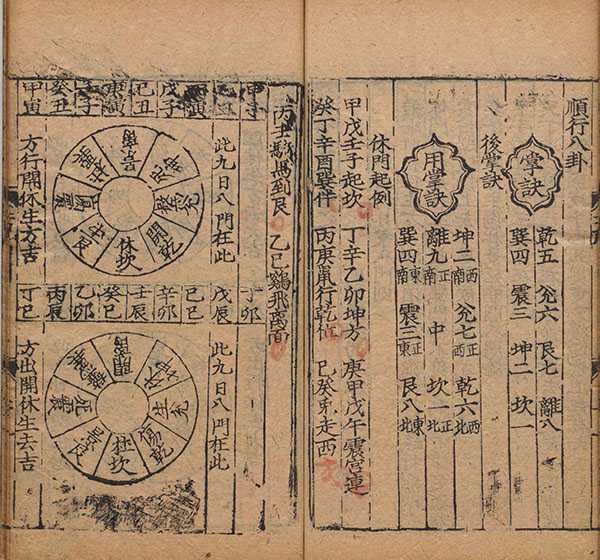 順行八卦
掌訣
乾五 兌六 艮七 離八
巽四 震三 坤二 坎一
後掌訣
坤二西南 兌七正西 乾六西北
離九正南 中 坎一正北
巽四東南 震三正東 艮八東北
用掌訣
休門起例
甲戊壬子起坎 丁辛乙卯坤方 庚甲戊午震宮連
癸丁辛酉巽 丙庚鼠行乾位 己癸 走西
丙壬騎馬到艮 乙巳鷄飛离面
甲子
丙寅
戊子
己丑
庚寅
壬子
癸丑
甲寅
此九日八門在此
休坎
開乾
方行開休生方吉
丁卯
戊辰
己巳
辛卯
壬辰
癸巳
乙卯
丙辰
丁巳
此九日八門在此
杜坎
傷乾
生兌
方出開休生去吉